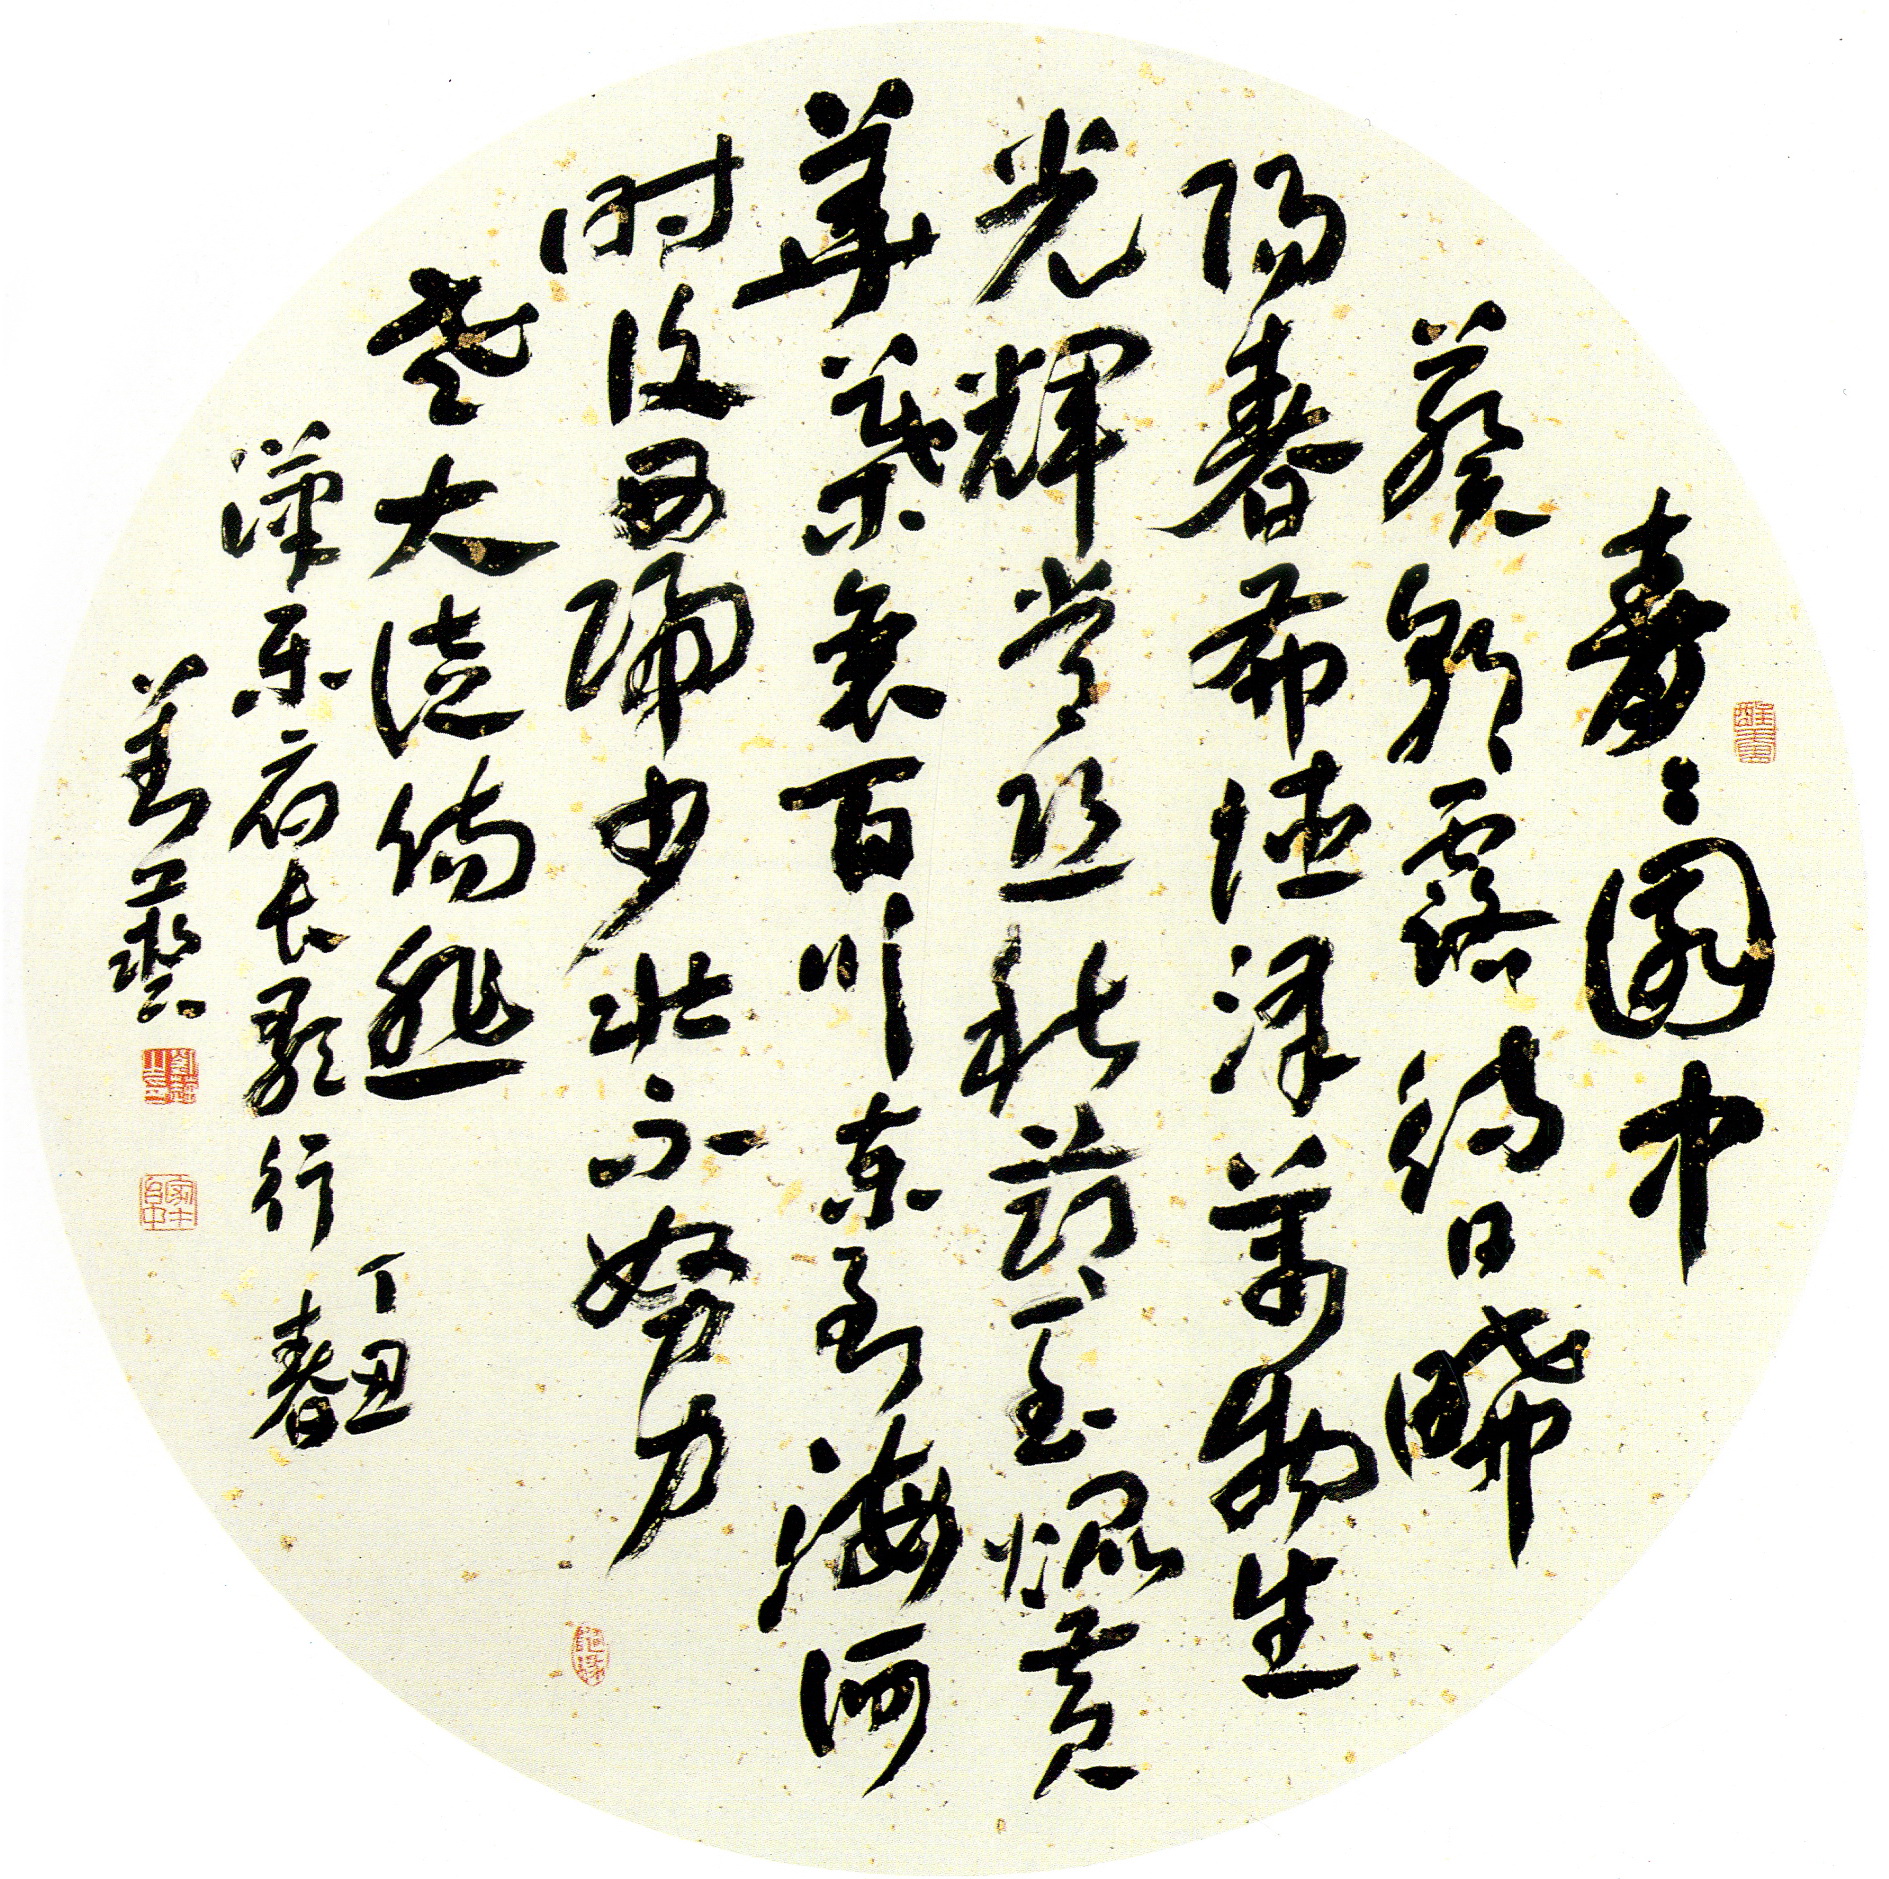 青々園中
葵朝露待日晞
陽春布德澤萬物生
光輝常恐秋節至焜黃
華葉衰百川東到海何
时復西歸少壯不努力
老大徒傷悲
漢樂府長歌行
丁丑
春
劉藝